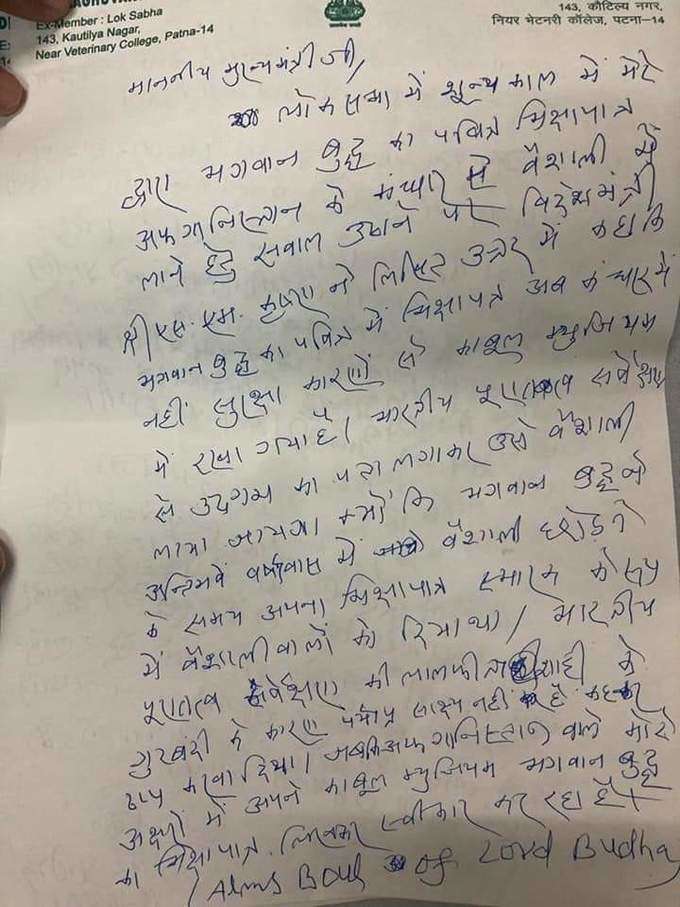 Ex-Member : Lok Sabha
143, Kautilya Nagar,
Near Veterinary College, Patna-14
143, कौटिल्य नगर,
नियर भेटनरी कॉलेज, पटना-14
माननीय मुख्यमंत्री जी,
लोकसभा में शून्य काल में मेरे
द्वारा भगवान बुद्ध का पवित्र भिक्षापात्र
अफगानिस्तान के कंधार से वैशाली में
लाने हेतु सवाल उठाने पर विदेशमंत्री
श्री एस. एम. कृष्णा ने लिखित उत्तर में कहा कि
भगवान बुद्ध का पवित्र में भिक्षापात्र अब कंधार में
नहीं सुरक्षा कारणों से काबुल म्युजियम
में रखा गया है। भारतीय पुरातत्व सर्वेक्षण
से उदगम का पता लगाकर उसे वैशाली
लाया जायगा क्योंकि भगवान बुद्ध ने
अन्तिम वर्षावास में वैशाली छोड़ने
के समय अपना भिक्षापात्र स्मारक के रूप
में वैशाली वालों को दिया था। भारतीय
पुरातत्व सर्वेक्षण की लालफीताशाही के
गुटबंदी के कारण पर्याप्त साक्ष्य नहीं है कहकर
ठप करवा दिया। जबकि अफगानिस्तान वाले मोटे
अक्षरों में अपने काबुल म्युजियम भगवान बुद्ध
का भिक्षापात्र लिखकर स्वीकार कर रहा है।
(Alms Boul of Lord Budha